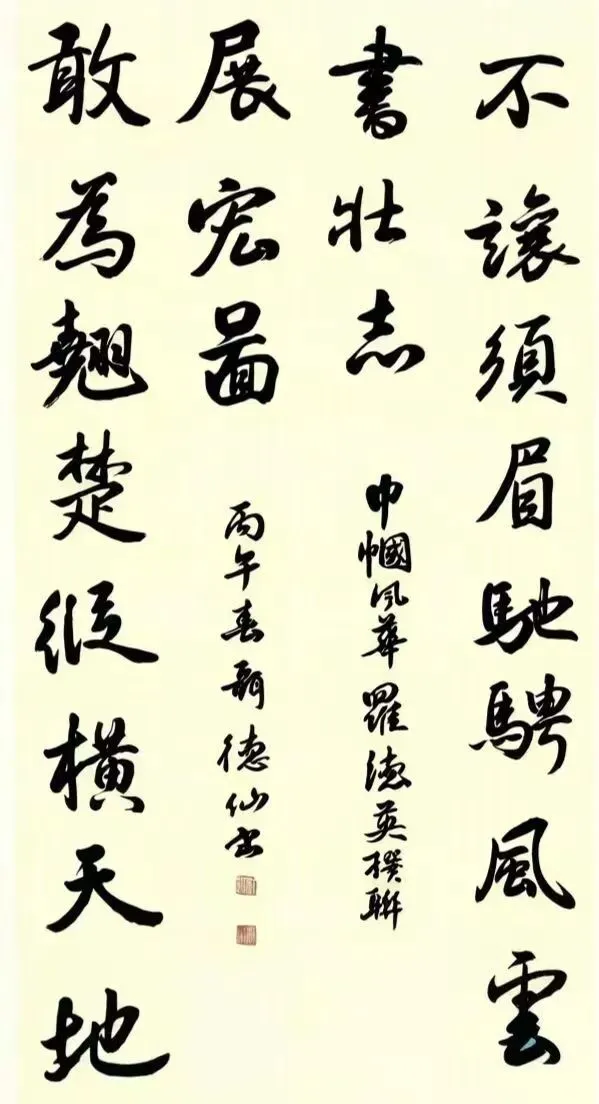 不讓須眉馳騁風雲
書壮志
巾幗風華羅德英撰聯
敢為翹楚縱橫天地
展宏啚
丙午春德仙书